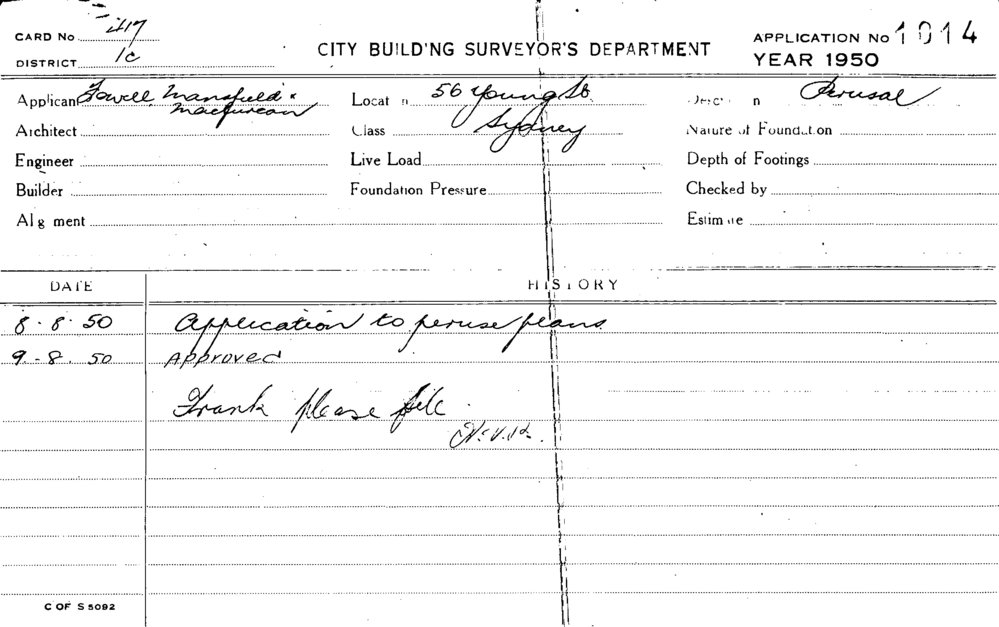 CARD No 417
DISTRICT 1C
CITY BUILD'NG SURVEYOR'S DEPARTMENT
APPLICATION No 1014
YEAR 1950
Applicant Fowell Mansfield &
Maclurcan
Location 56 Young St.
Sydney
Descri n Perusal
Architect
Class
Nature of Foundation
Engineer
Live Load
Depth of Footings
Builder
Foundation Pressure
Checked by
Alig ment
Estimate
DATE
HISTORY
8.8.50 Application to peruse plans
9-8.50 Approved
Frank please file
C OF S 5092